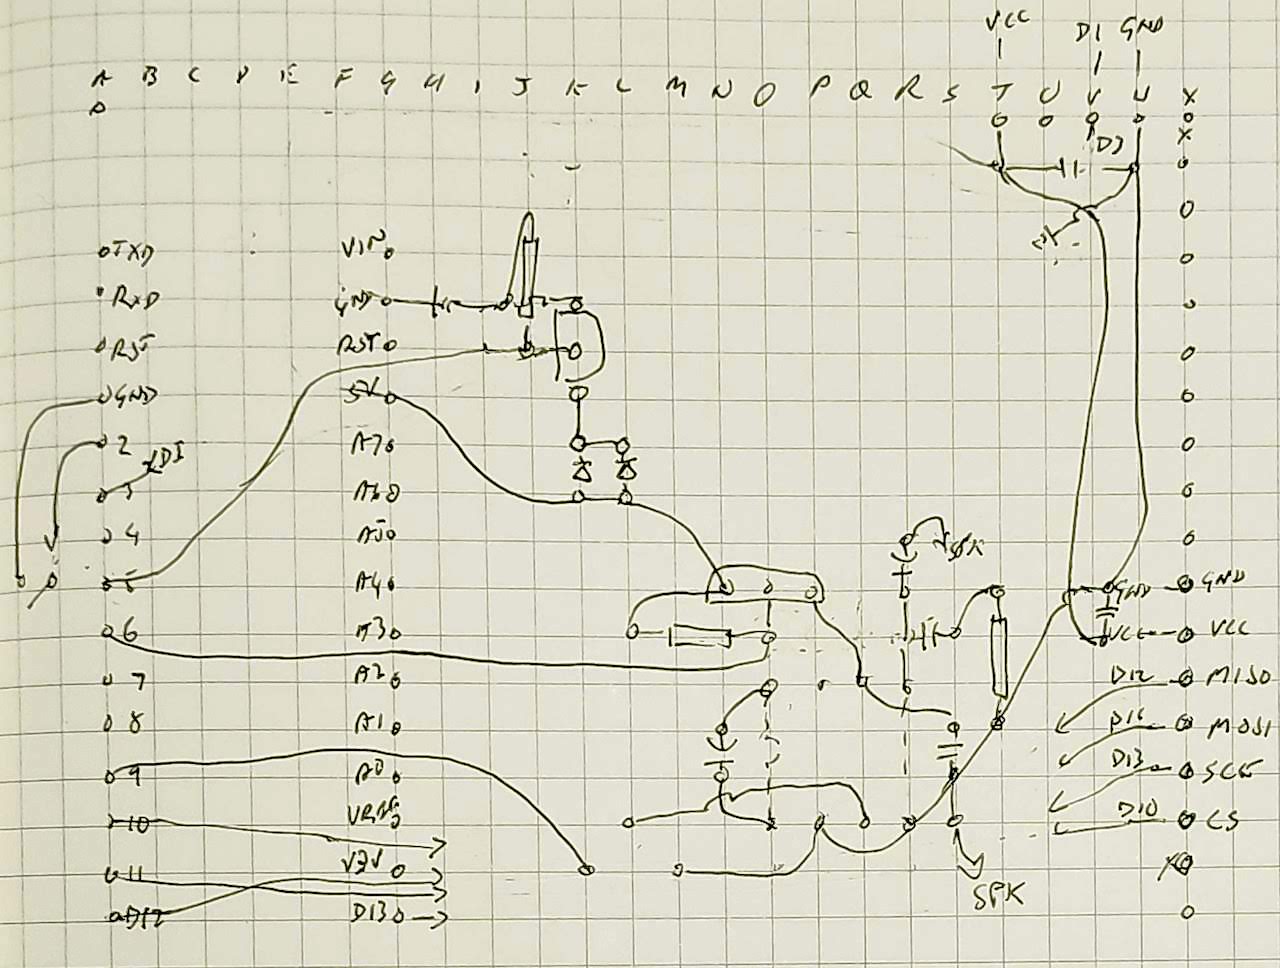 VCC D1 GND
A B C D E F G H I J K L M N O P Q R S T U V W X
D3
TXD VIN
RXD GND
RST RST
GND 5V
2 A7
3 A6
4 A5
5 A4 GND GND
6 A3 VCC VCC
7 A2 D12 MISO
8 A1 D11 MOSI
9 A0 D13 SCK
10 VREF D10 CS
11 V3V
D12 D13
SPK